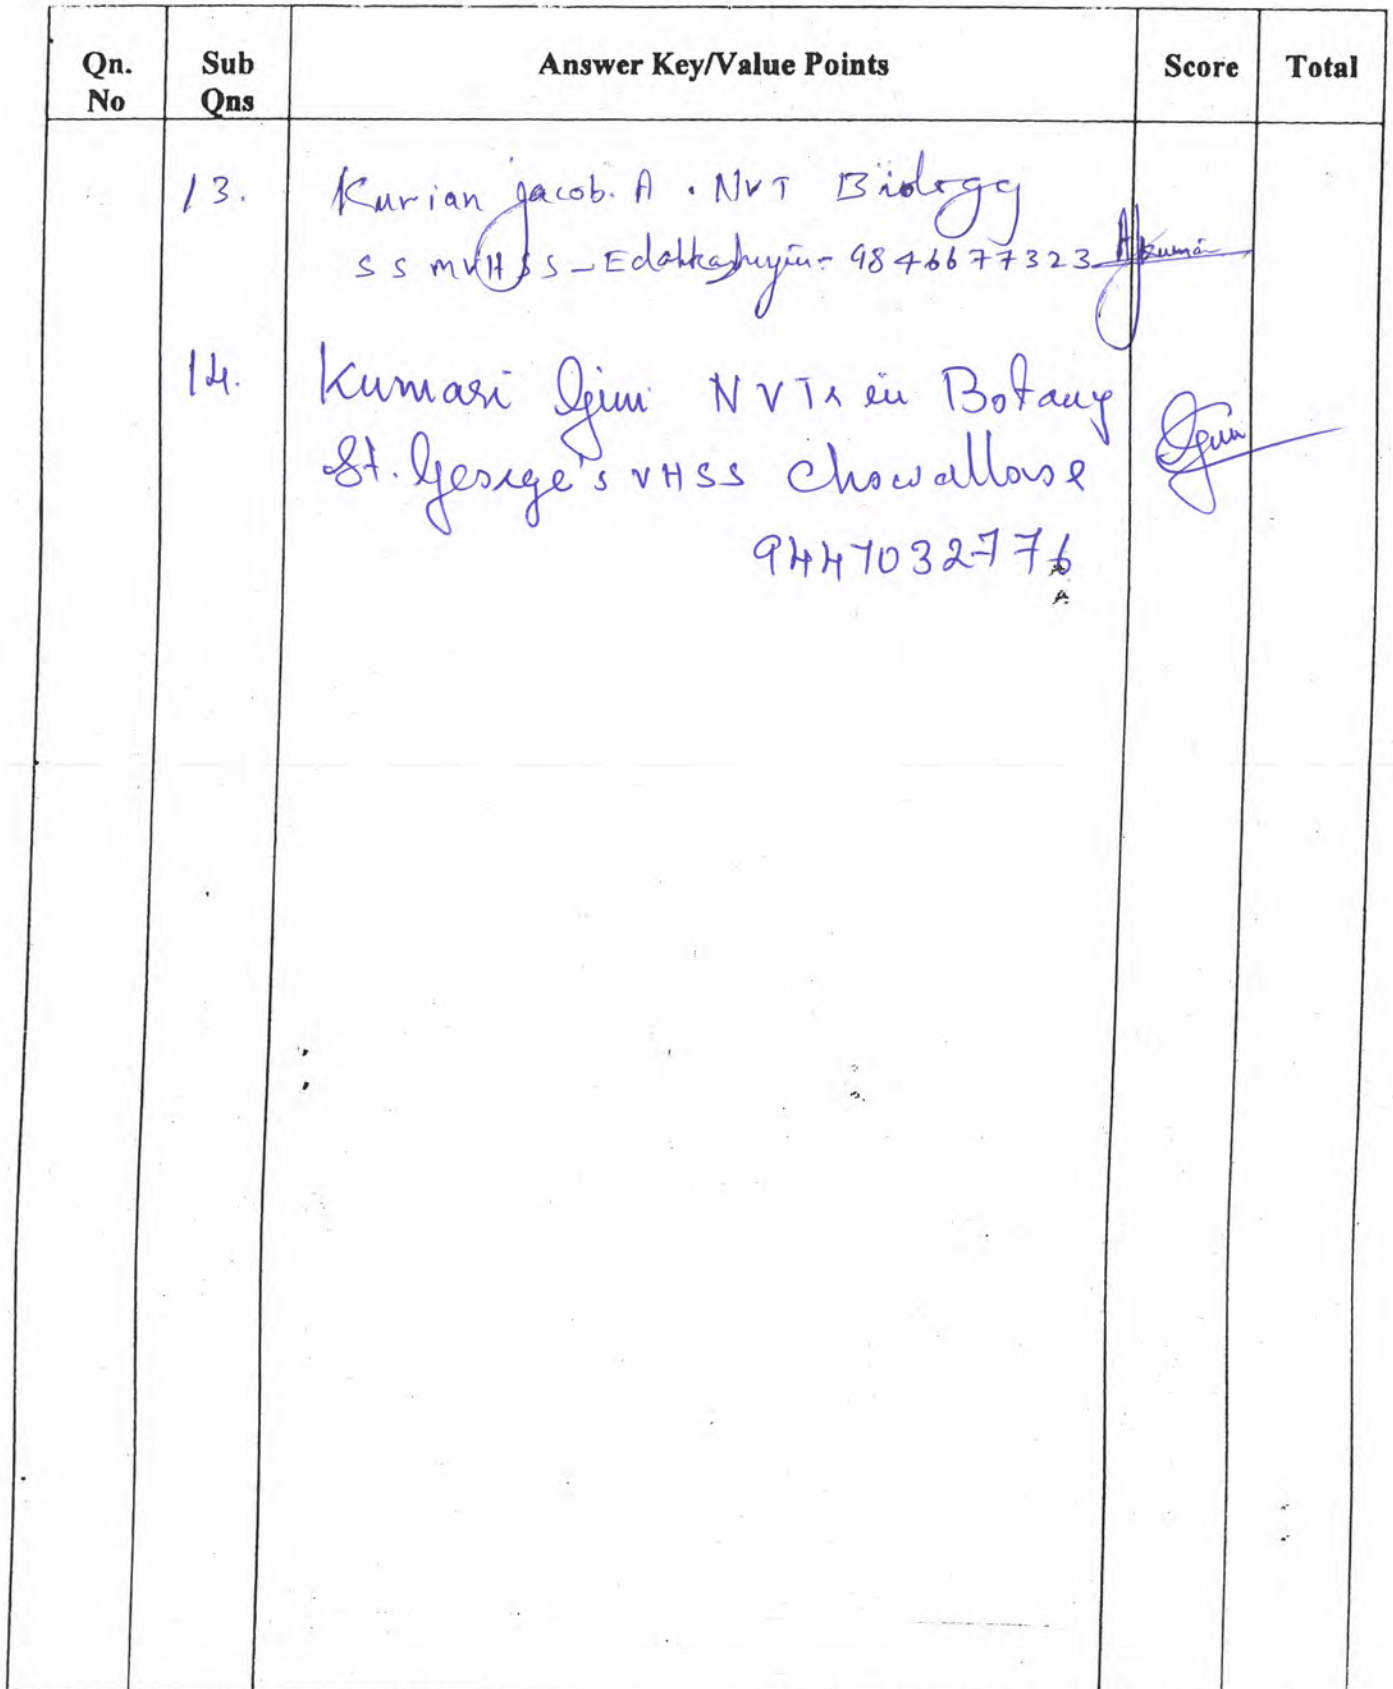 Qn. No Sub Qns Answer Key/Value Points Score Total
13. Kurian Jacob. A . NVT Biology
SSMVHSS - 9846677323
14. Kumari NVT in Botany
St. George's VHSS Chowallore
9447032776